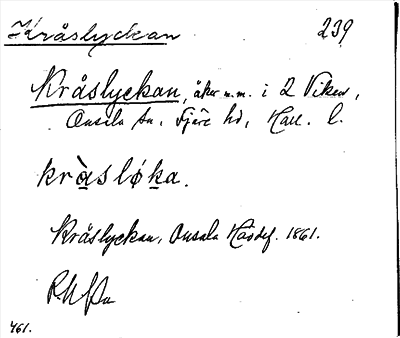 Kråslyckan 239
Kråslyckan, åker m.m. i 2 Viken,
Onsala sn, Fjäre hd, Hall. l.
kràsløka.
Kråslyckan, Onsala Häsdef. 1861.
461.